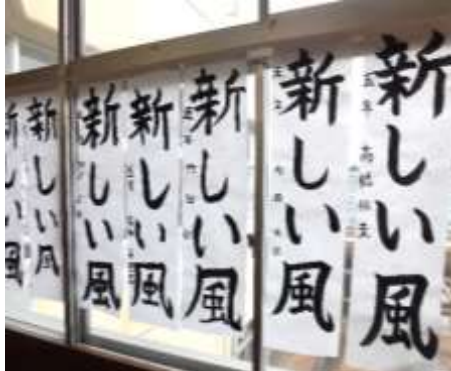 新しい風
五年
新しい風
新しい風
五年
新しい風
新しい風
新しい風